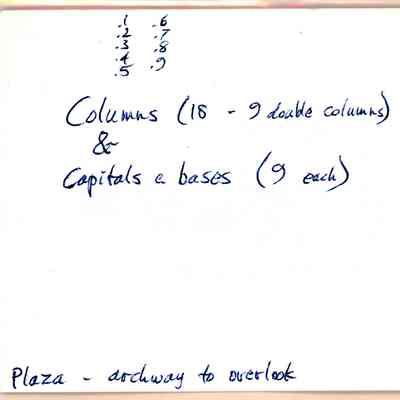 .1 .6
.2 .7
.3 .8
.4 .9
.5
Columns (18 - 9 double columns)
&
Capitals & bases (9 each)
Plaza - archway to overlook